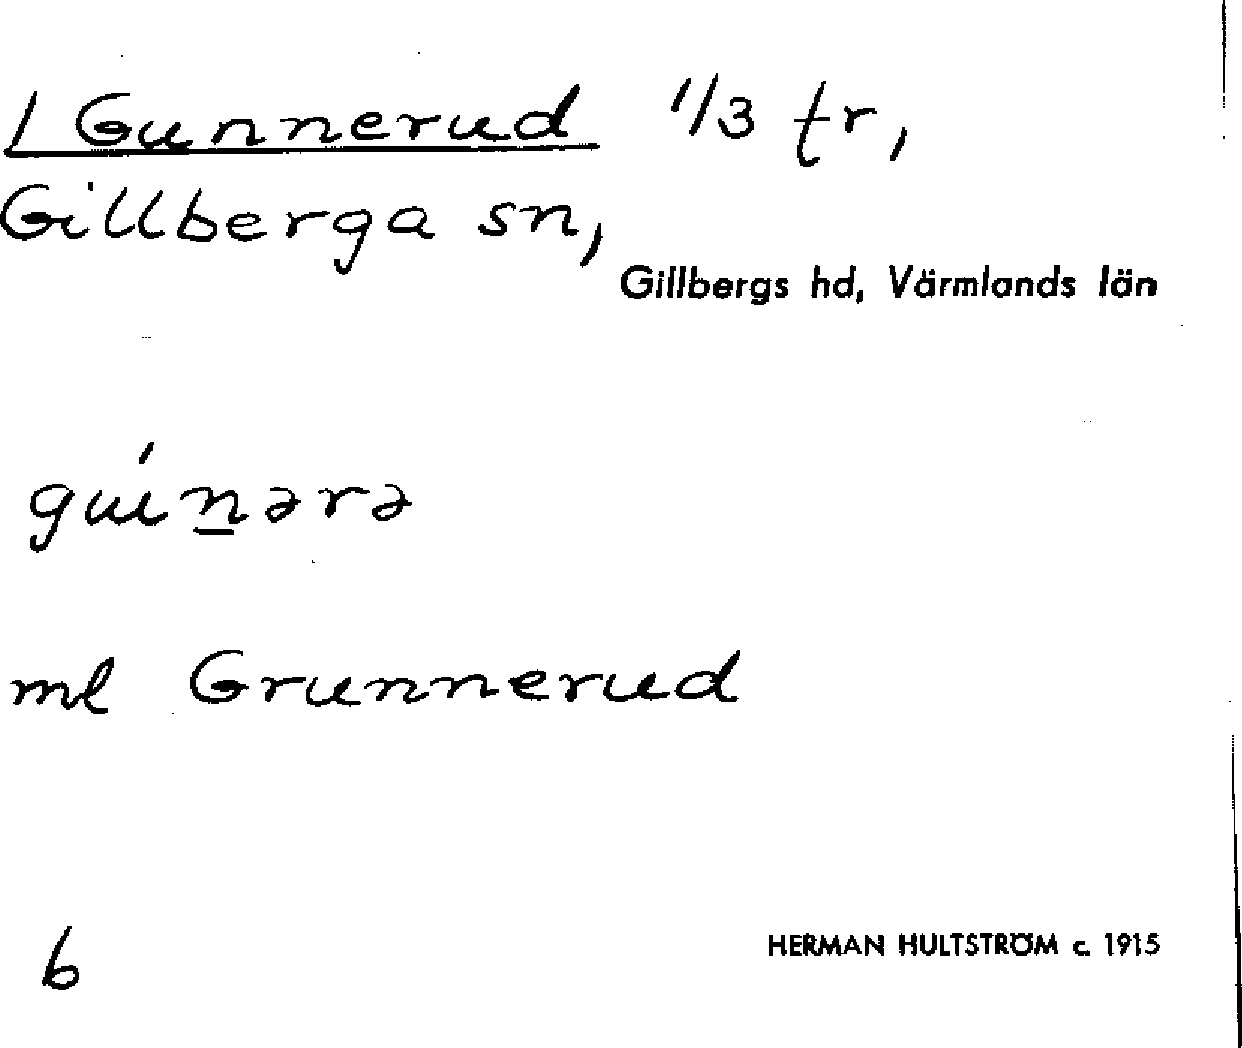 / Gunnerud 1/3 fr,
Gillberga sn,
Gillbergs hd, Värmlands län
ml Grunnerud
b
HERMAN HULTSTRÖM c. 1915